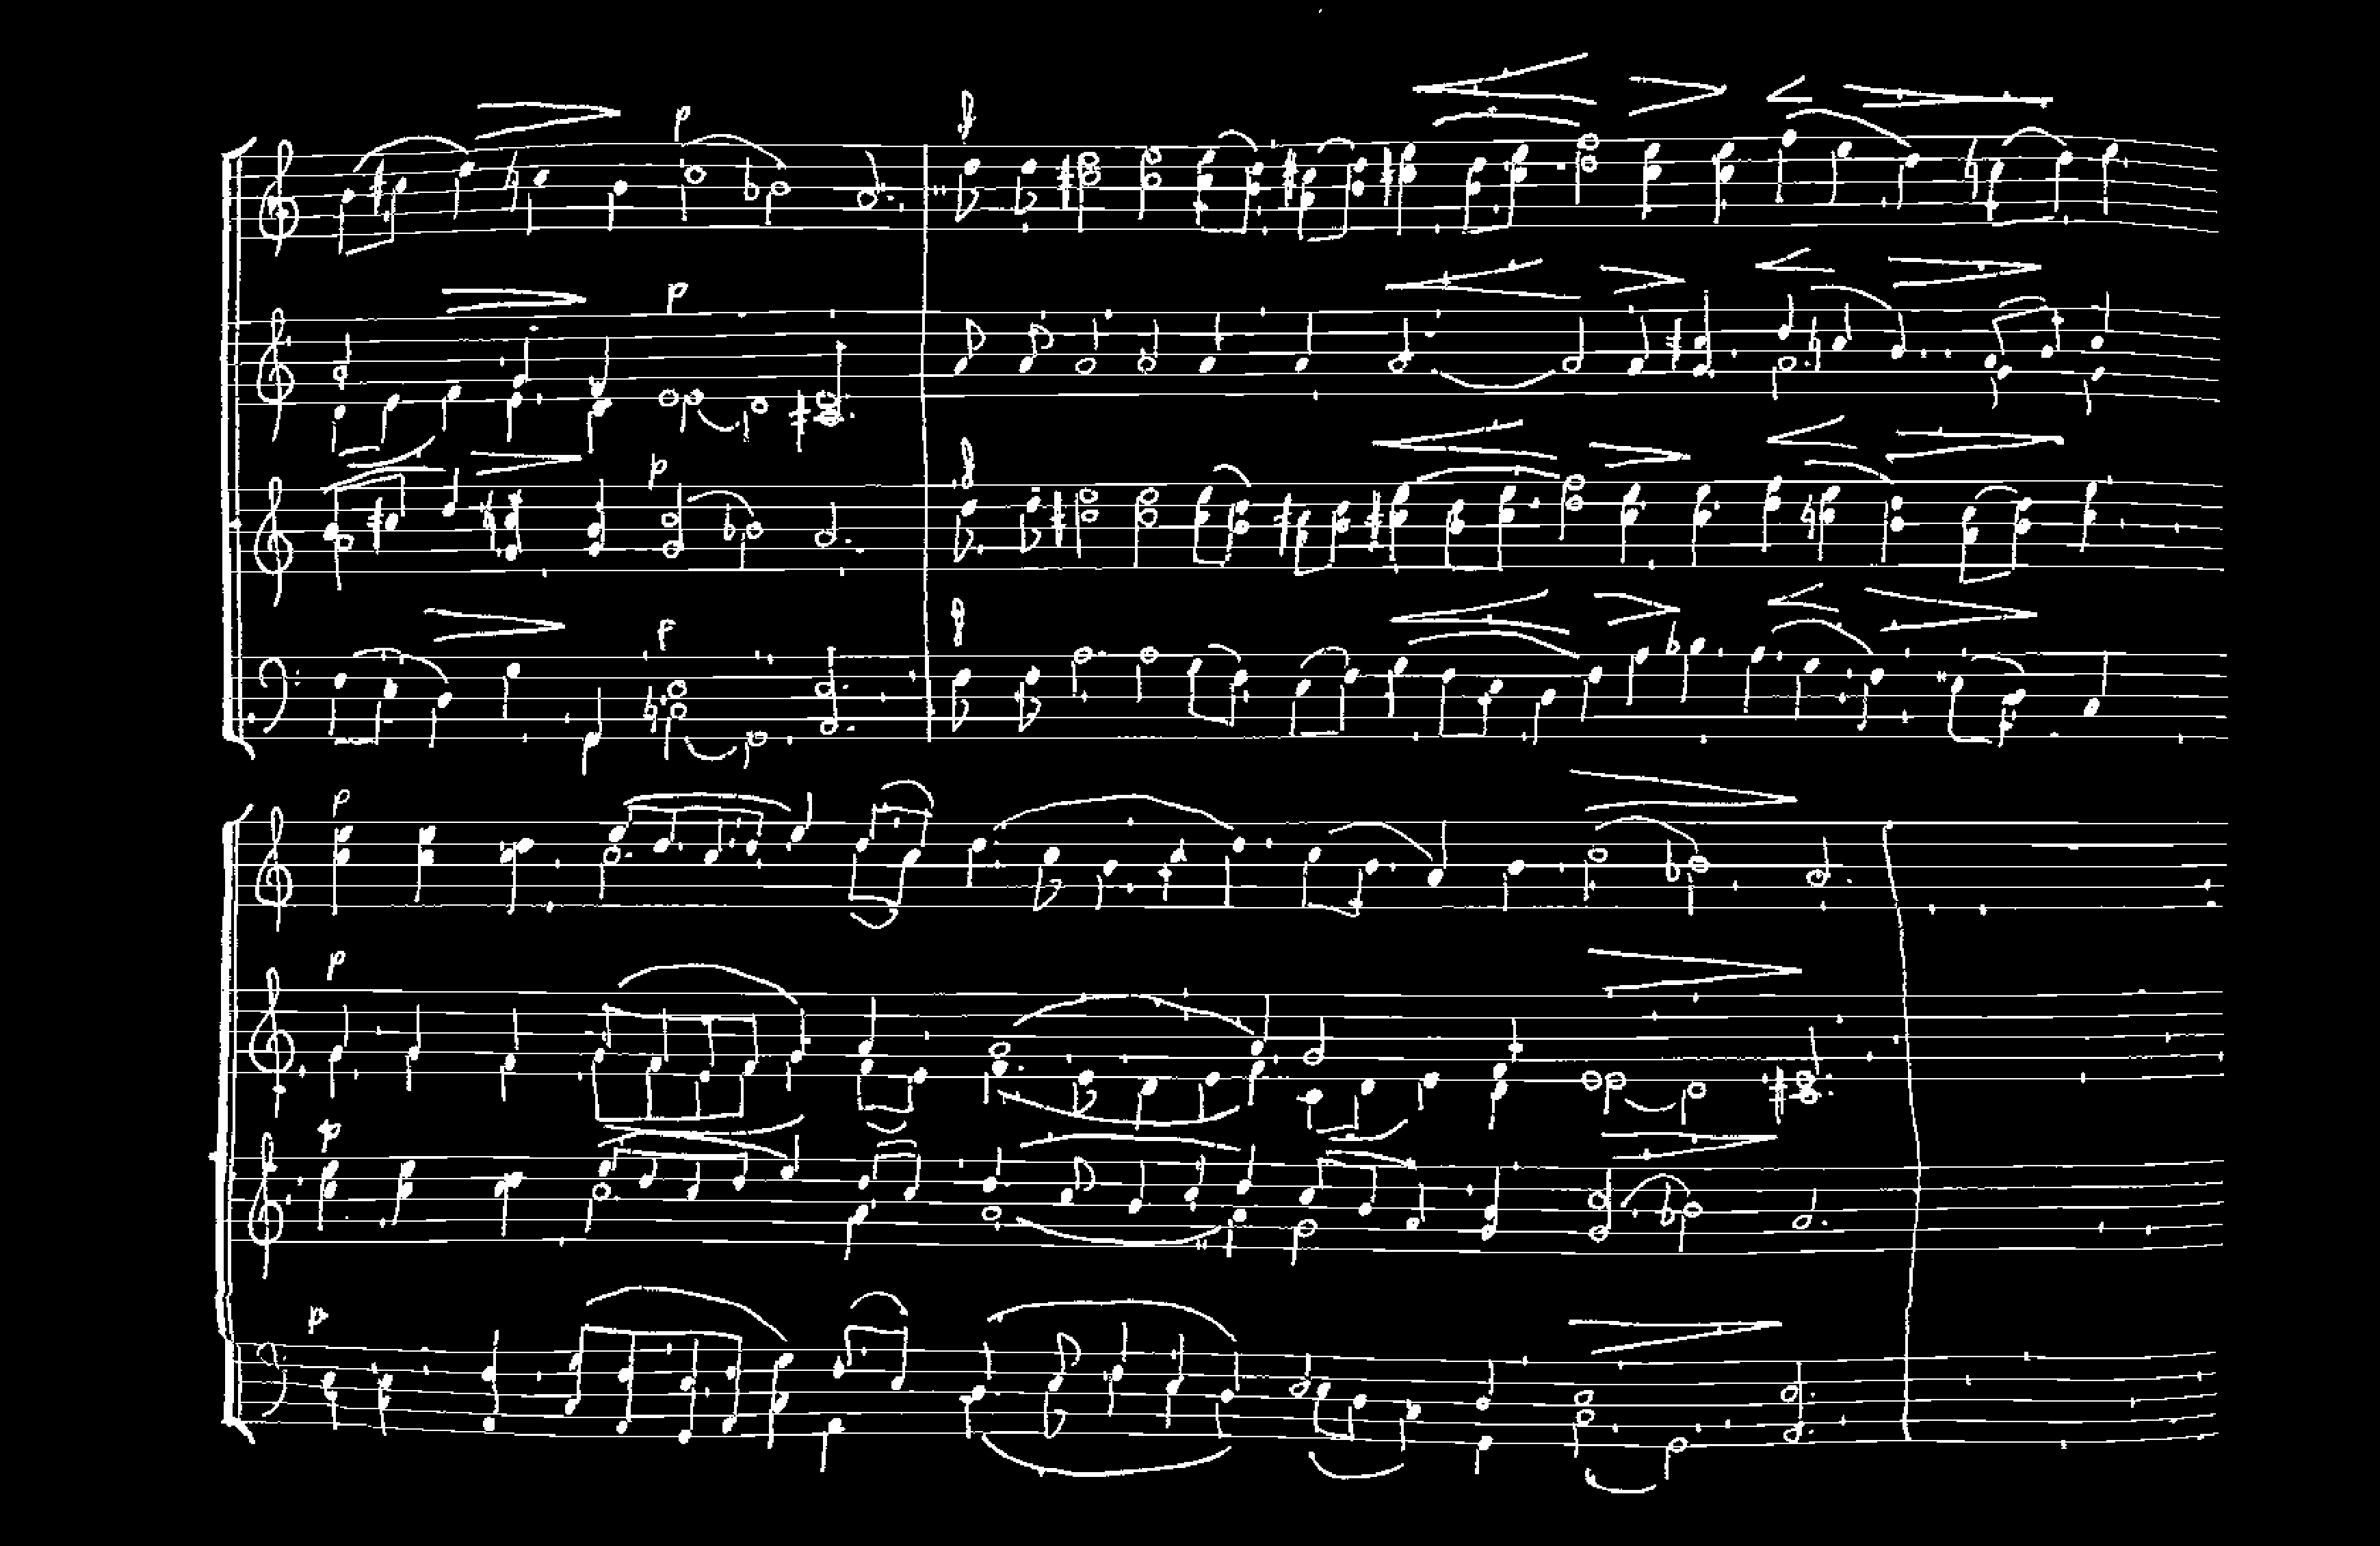 p
p
p
p
f
f
f
p
p
p
p